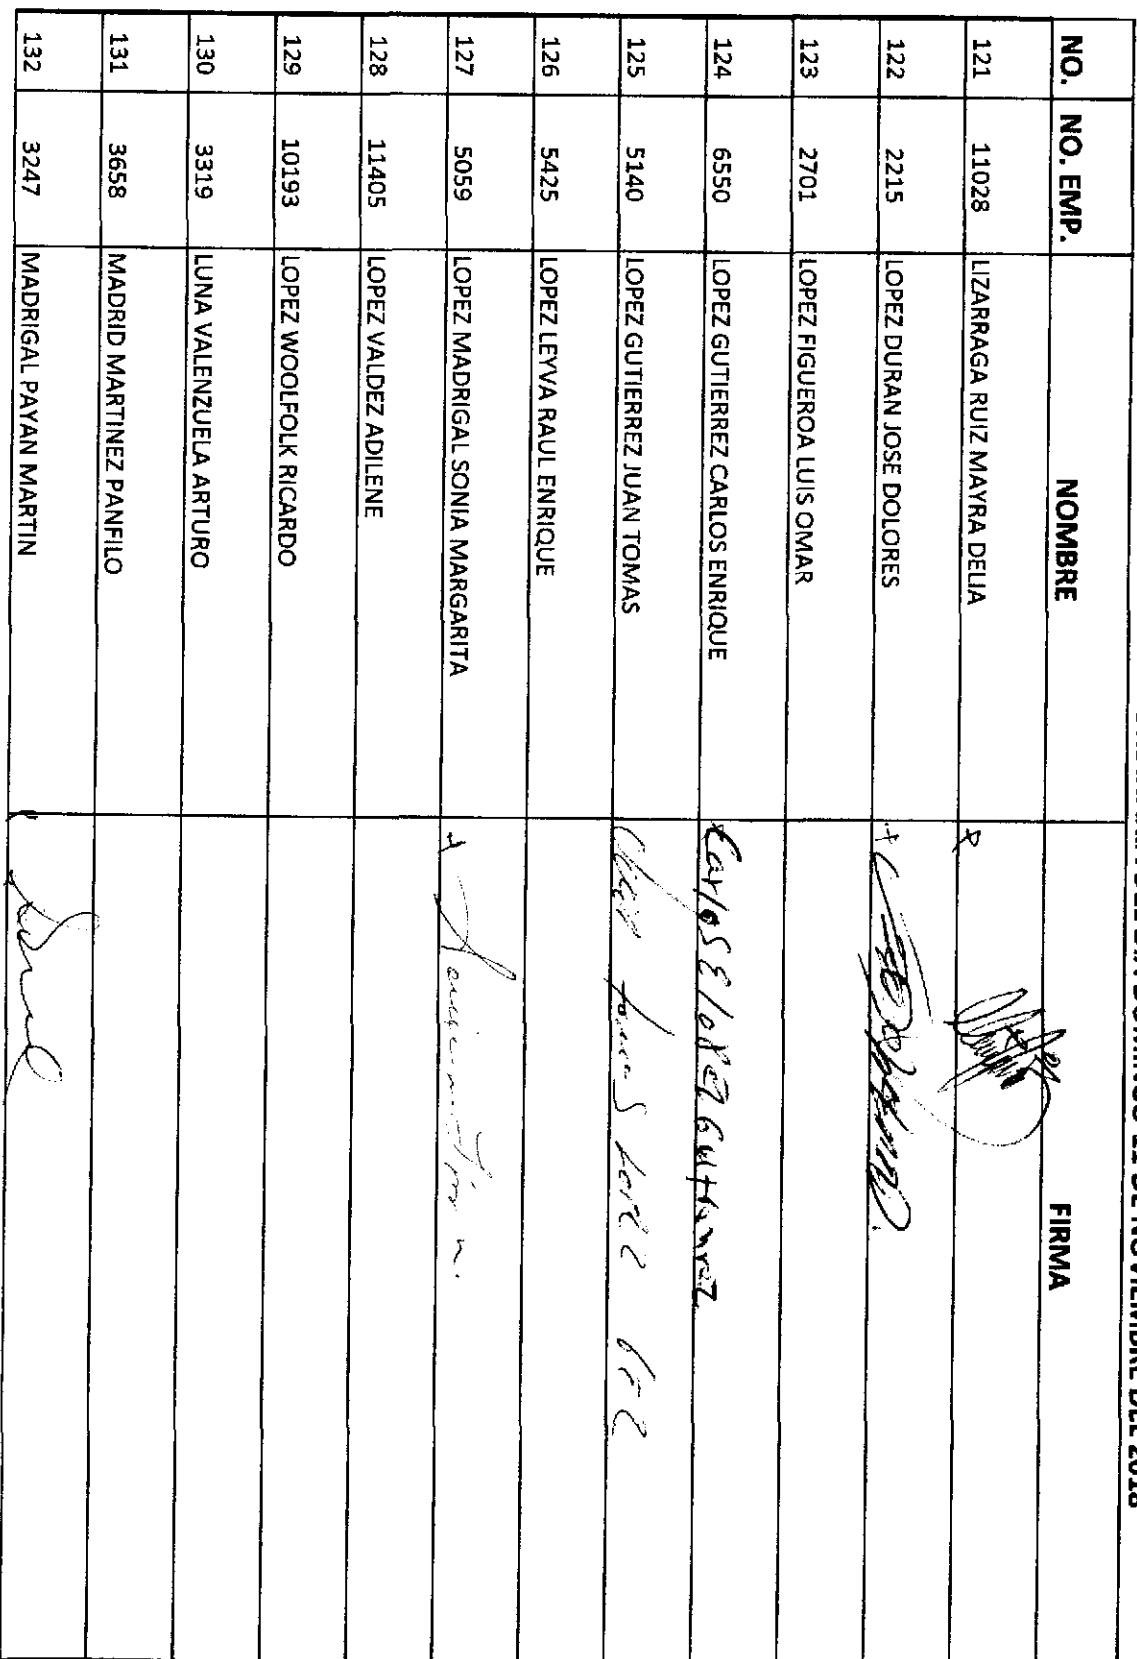 DOMINGO 11 DE NOVIEMBRE DEL 2018
NO. NO. EMP. NOMBRE FIRMA
121 11028 LIZARRAGA RUIZ MAYRA DELIA
122 2215 LOPEZ DURAN JOSE DOLORES
123 2701 LOPEZ FIGUEROA LUIS OMAR
124 6550 LOPEZ GUTIERREZ CARLOS ENRIQUE Carlos E lopez Gutierrez
125 5140 LOPEZ GUTIERREZ JUAN TOMAS
126 5425 LOPEZ LEYVA RAUL ENRIQUE
127 5059 LOPEZ MADRIGAL SONIA MARGARITA
128 11405 LOPEZ VALDEZ ADILENE
129 10193 LOPEZ WOOLFOLK RICARDO
130 3319 LUNA VALENZUELA ARTURO
131 3658 MADRID MARTINEZ PANFILO
132 3247 MADRIGAL PAYAN MARTIN